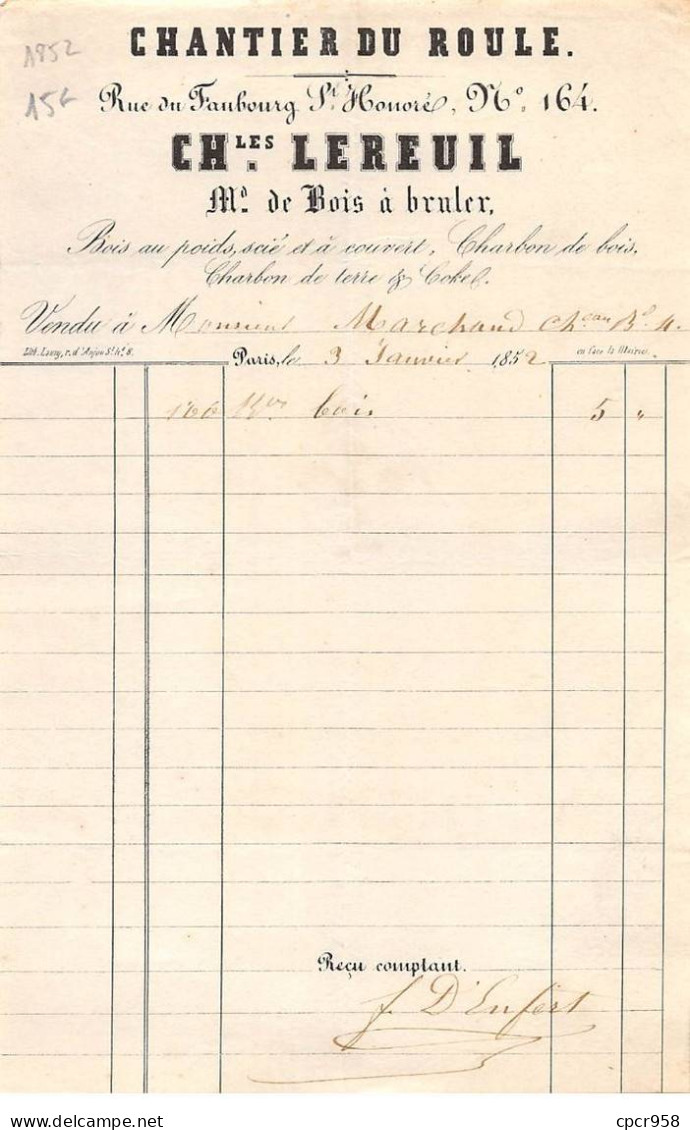 1852
15€
CHANTIER DU ROULE.
Rue du Faubourg St. Honoré, No. 164.
CHLES. LEREUIL
Md. de Bois à bruler,
Bois au poids, scié et à couvert, Charbon de bois,
Charbon de terre & Coke.
Vendu à Monsieur Marchand
Lith. Lang, r. d'Anjou St. H. 8. Paris, le 3 Janvier 1852 en face la Mairie.
160 bois 5 "
Reçu comptant.
f. D'Enfert
cpcr958